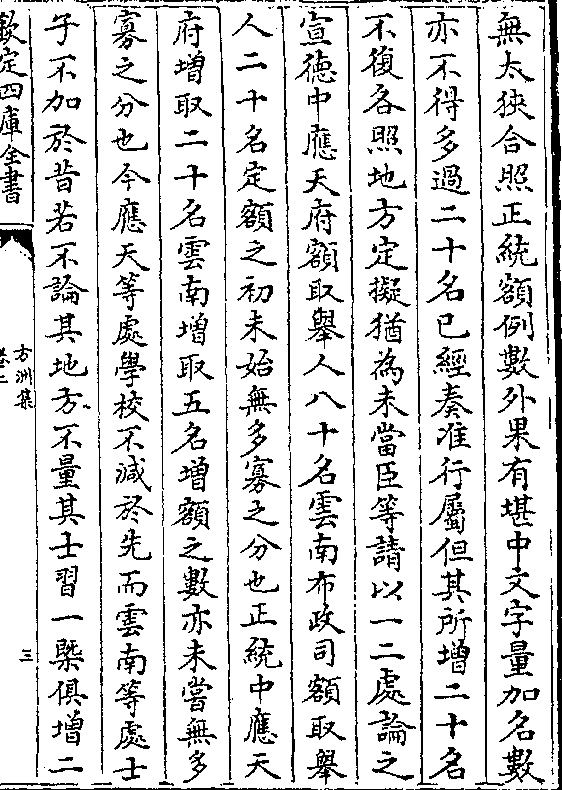 無太狹合照正統額例數外果有堪中文字量加名數
亦不得多過二十名已經奏准行屬但其所增二十名
不復各照地方定擬猶為未當臣等請以一二處論之
宣德中應天府額取舉人八十名雲南布政司額取舉
人二十名定額之初未始無多寡之分也正統中應天
府增取二十名雲南增取五名增額之數亦未嘗無多
寡之分也今應天等處學校不減於先而雲南等處士
子不加於昔若不論其地方不量其士習一槩俱增二
欽定四庫全書
方洲集
卷二
三